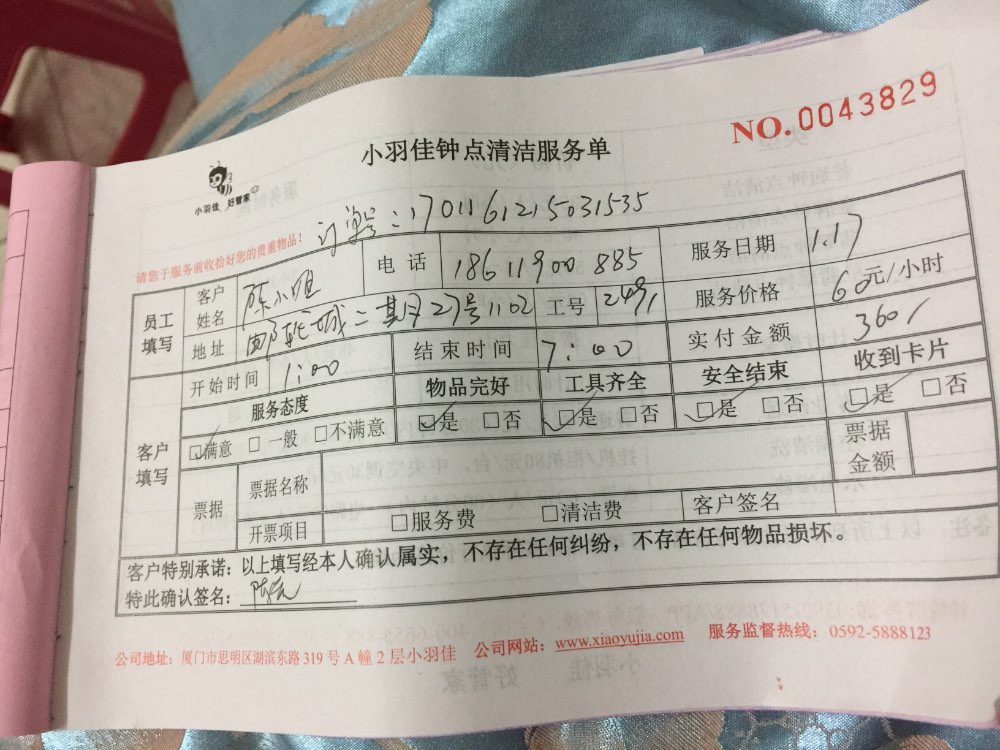 NO.0043829
小羽佳钟点清洁服务单
小羽佳 好管家
订单号：1701161215031535
请您于服务前收拾好您的贵重物品！
员工填写 客户姓名 陈小姐 电话 18611900885 服务日期 1.17
地址 邮轮城二期27号1102 工号 2491 服务价格 60元/小时
开始时间 1:00 结束时间 7:00 实付金额 360/
客户填写 服务态度 物品完好 工具齐全 安全结束 收到卡片
☑满意 □一般 □不满意 ☑是 □否 ☑是 □否 ☑是 □否 ☑是 □否
票据 票据名称 票据金额
开票项目 □服务费 □清洁费 客户签名
客户特别承诺：以上填写经本人确认属实，不存在任何纠纷，不存在任何物品损坏。
特此确认签名：
公司地址：厦门市思明区湖滨东路319号A幢2层小羽佳 公司网站：www.xiaoyujia.com 服务监督热线：0592-5888123